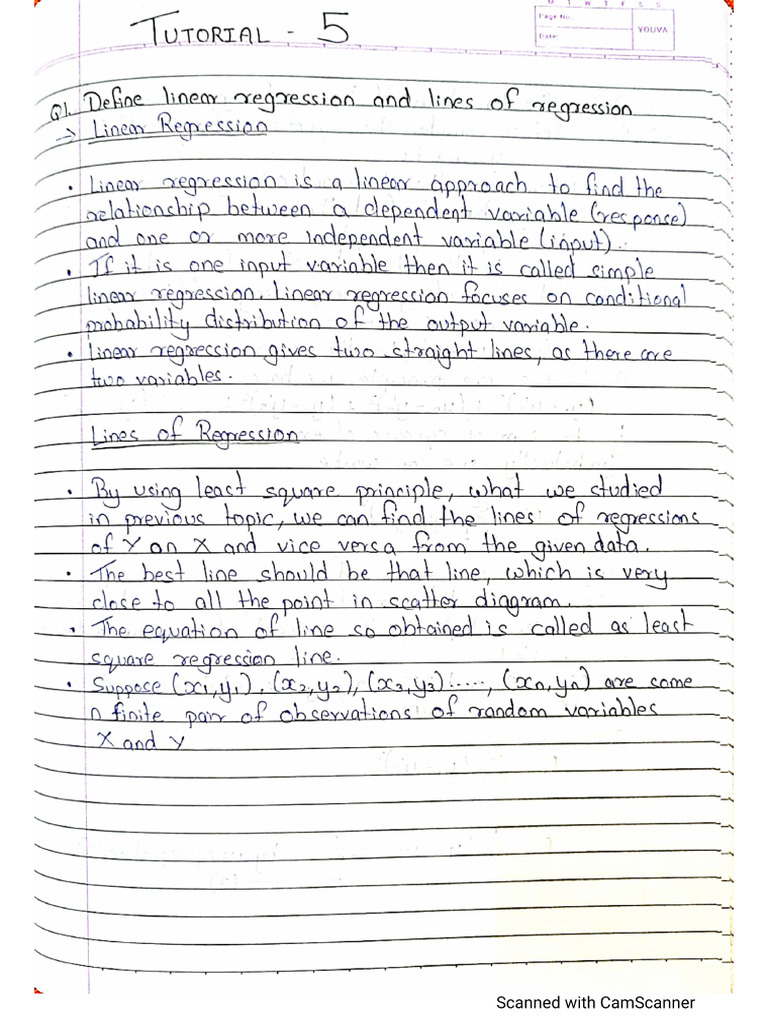 M T W T F S S
Page No.:
Date:
YOUVA
TUTORIAL - 5
Q1. Define linear regression and lines of regression
→ Linear Regression
• Linear regression is a linear approach to find the
relationship between a dependent variable (response)
and one or more independent variable (input).
• If it is one input variable then it is called simple
linear regression. Linear regression focuses on conditional
probability distribution of the output variable.
• Linear regression gives two straight lines, as there are
two variables.
Lines of Regression
• By using least square principle, what we studied
in previous topic, we can find the lines of regressions
of Y on X and vice versa from the given data.
• The best line should be that line, which is very
close to all the point in scatter diagram.
• The equation of line so obtained is called as least
square regression line.
• Suppose (x1,y1), (x2,y2), (x3,y3)....., (xn,yn) are some
n finite pair of observations of random variables
X and Y
Scanned with CamScanner